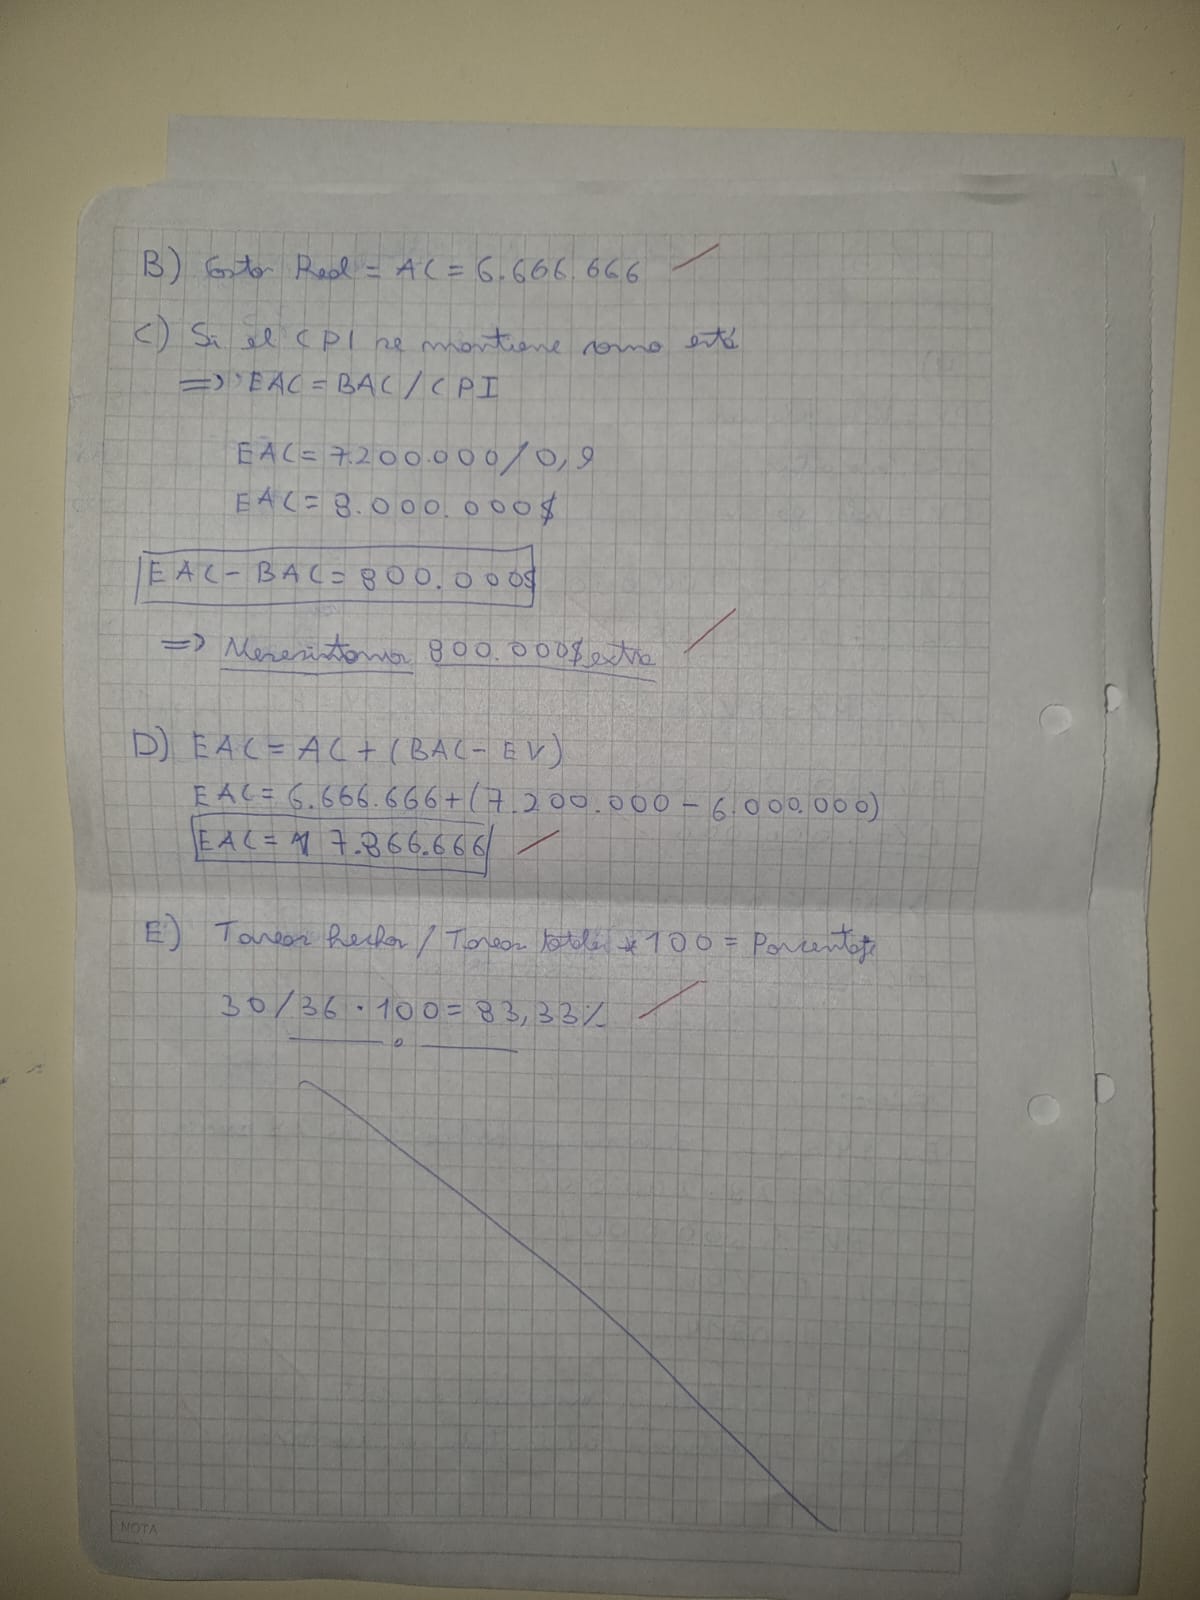 B) Costo Real = AC = 6.666.666
C) Si el CPI se mantiene como está
=> EAC = BAC / CPI
EAC = 7.200.000 / 0,9
EAC = 8.000.000$
EAC - BAC = 800.000$
=> Necesitamos 800.000$ extra
D) EAC = AC + (BAC - EV)
EAC = 6.666.666 + (7.200.000 - 6.000.000)
EAC = 7.866.666
E) Tareas hechas / Tareas totales * 100 = Porcentaje
30/36 · 100 = 83,33%
NOTA